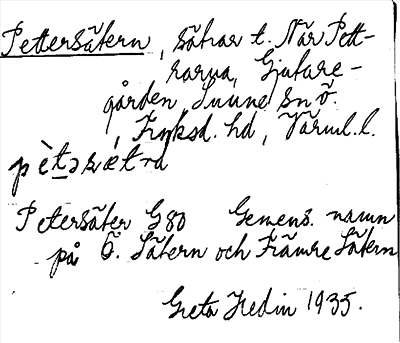 Pettersätern, sätrar t. När Pett-
rarna, Gjutare-
gården, Sunne sn Ö.
, Fryksd. hd, Värml. l.
pètəʂǽtra
Petersäter G80 Gemens. namn
på Ö. Sätern och Främre Sätern
Greta Hedin 1935.